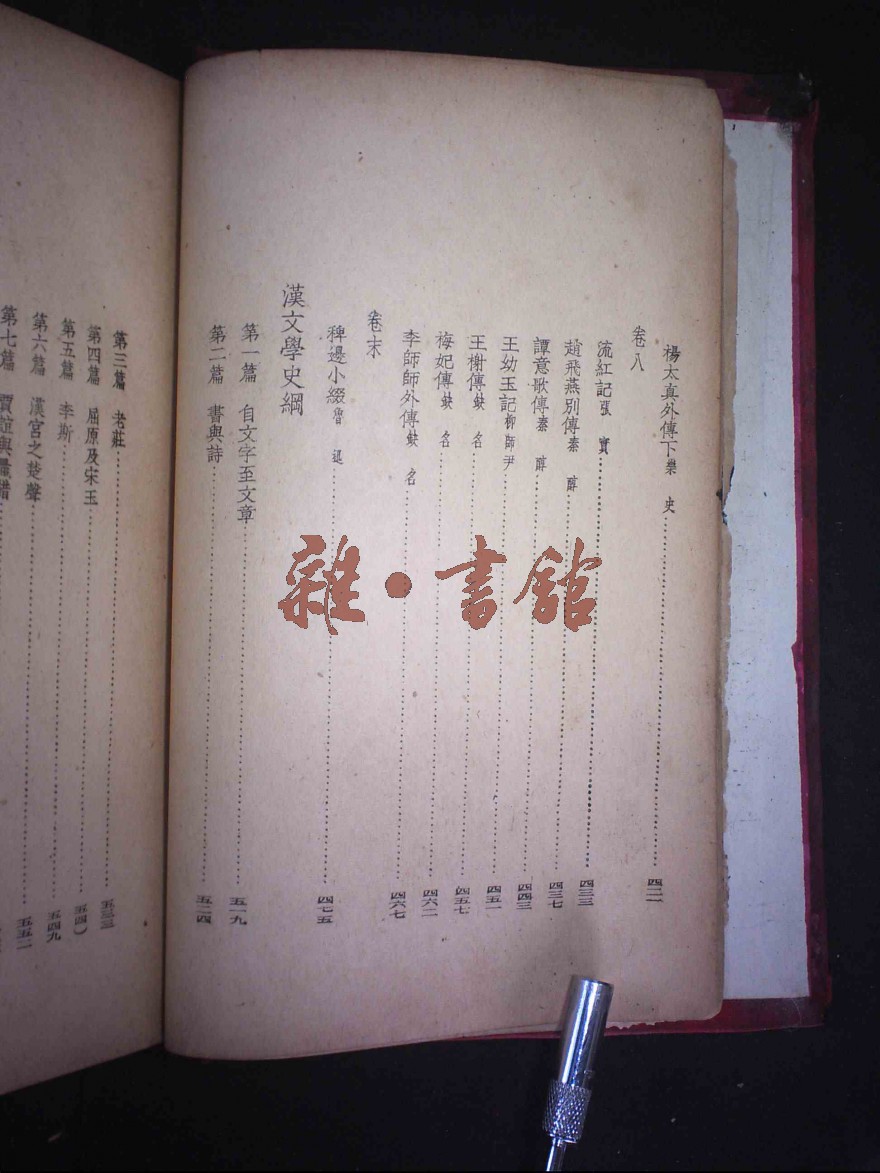 楊太真外傳下 樂史 四二二
卷八
流紅記 張實 四三三
趙飛燕別傳 秦醇 四三七
譚意歌傳 秦醇 四四三
王幼玉記 柳師尹 四五一
王榭傳 缺名 四五七
梅妃傳 缺名 四六二
李師師外傳 缺名 四六七
卷末
稗邊小綴 魯迅 四七五
漢文學史綱
第一篇 自文字至文章 五一九
第二篇 書與詩 五二四
第三篇 老莊 五三三
第四篇 屈原及宋玉 五四
第五篇 李斯 五四九
第六篇 漢宮之楚聲 五五二
第七篇 賈誼與鼂錯
雜·書館